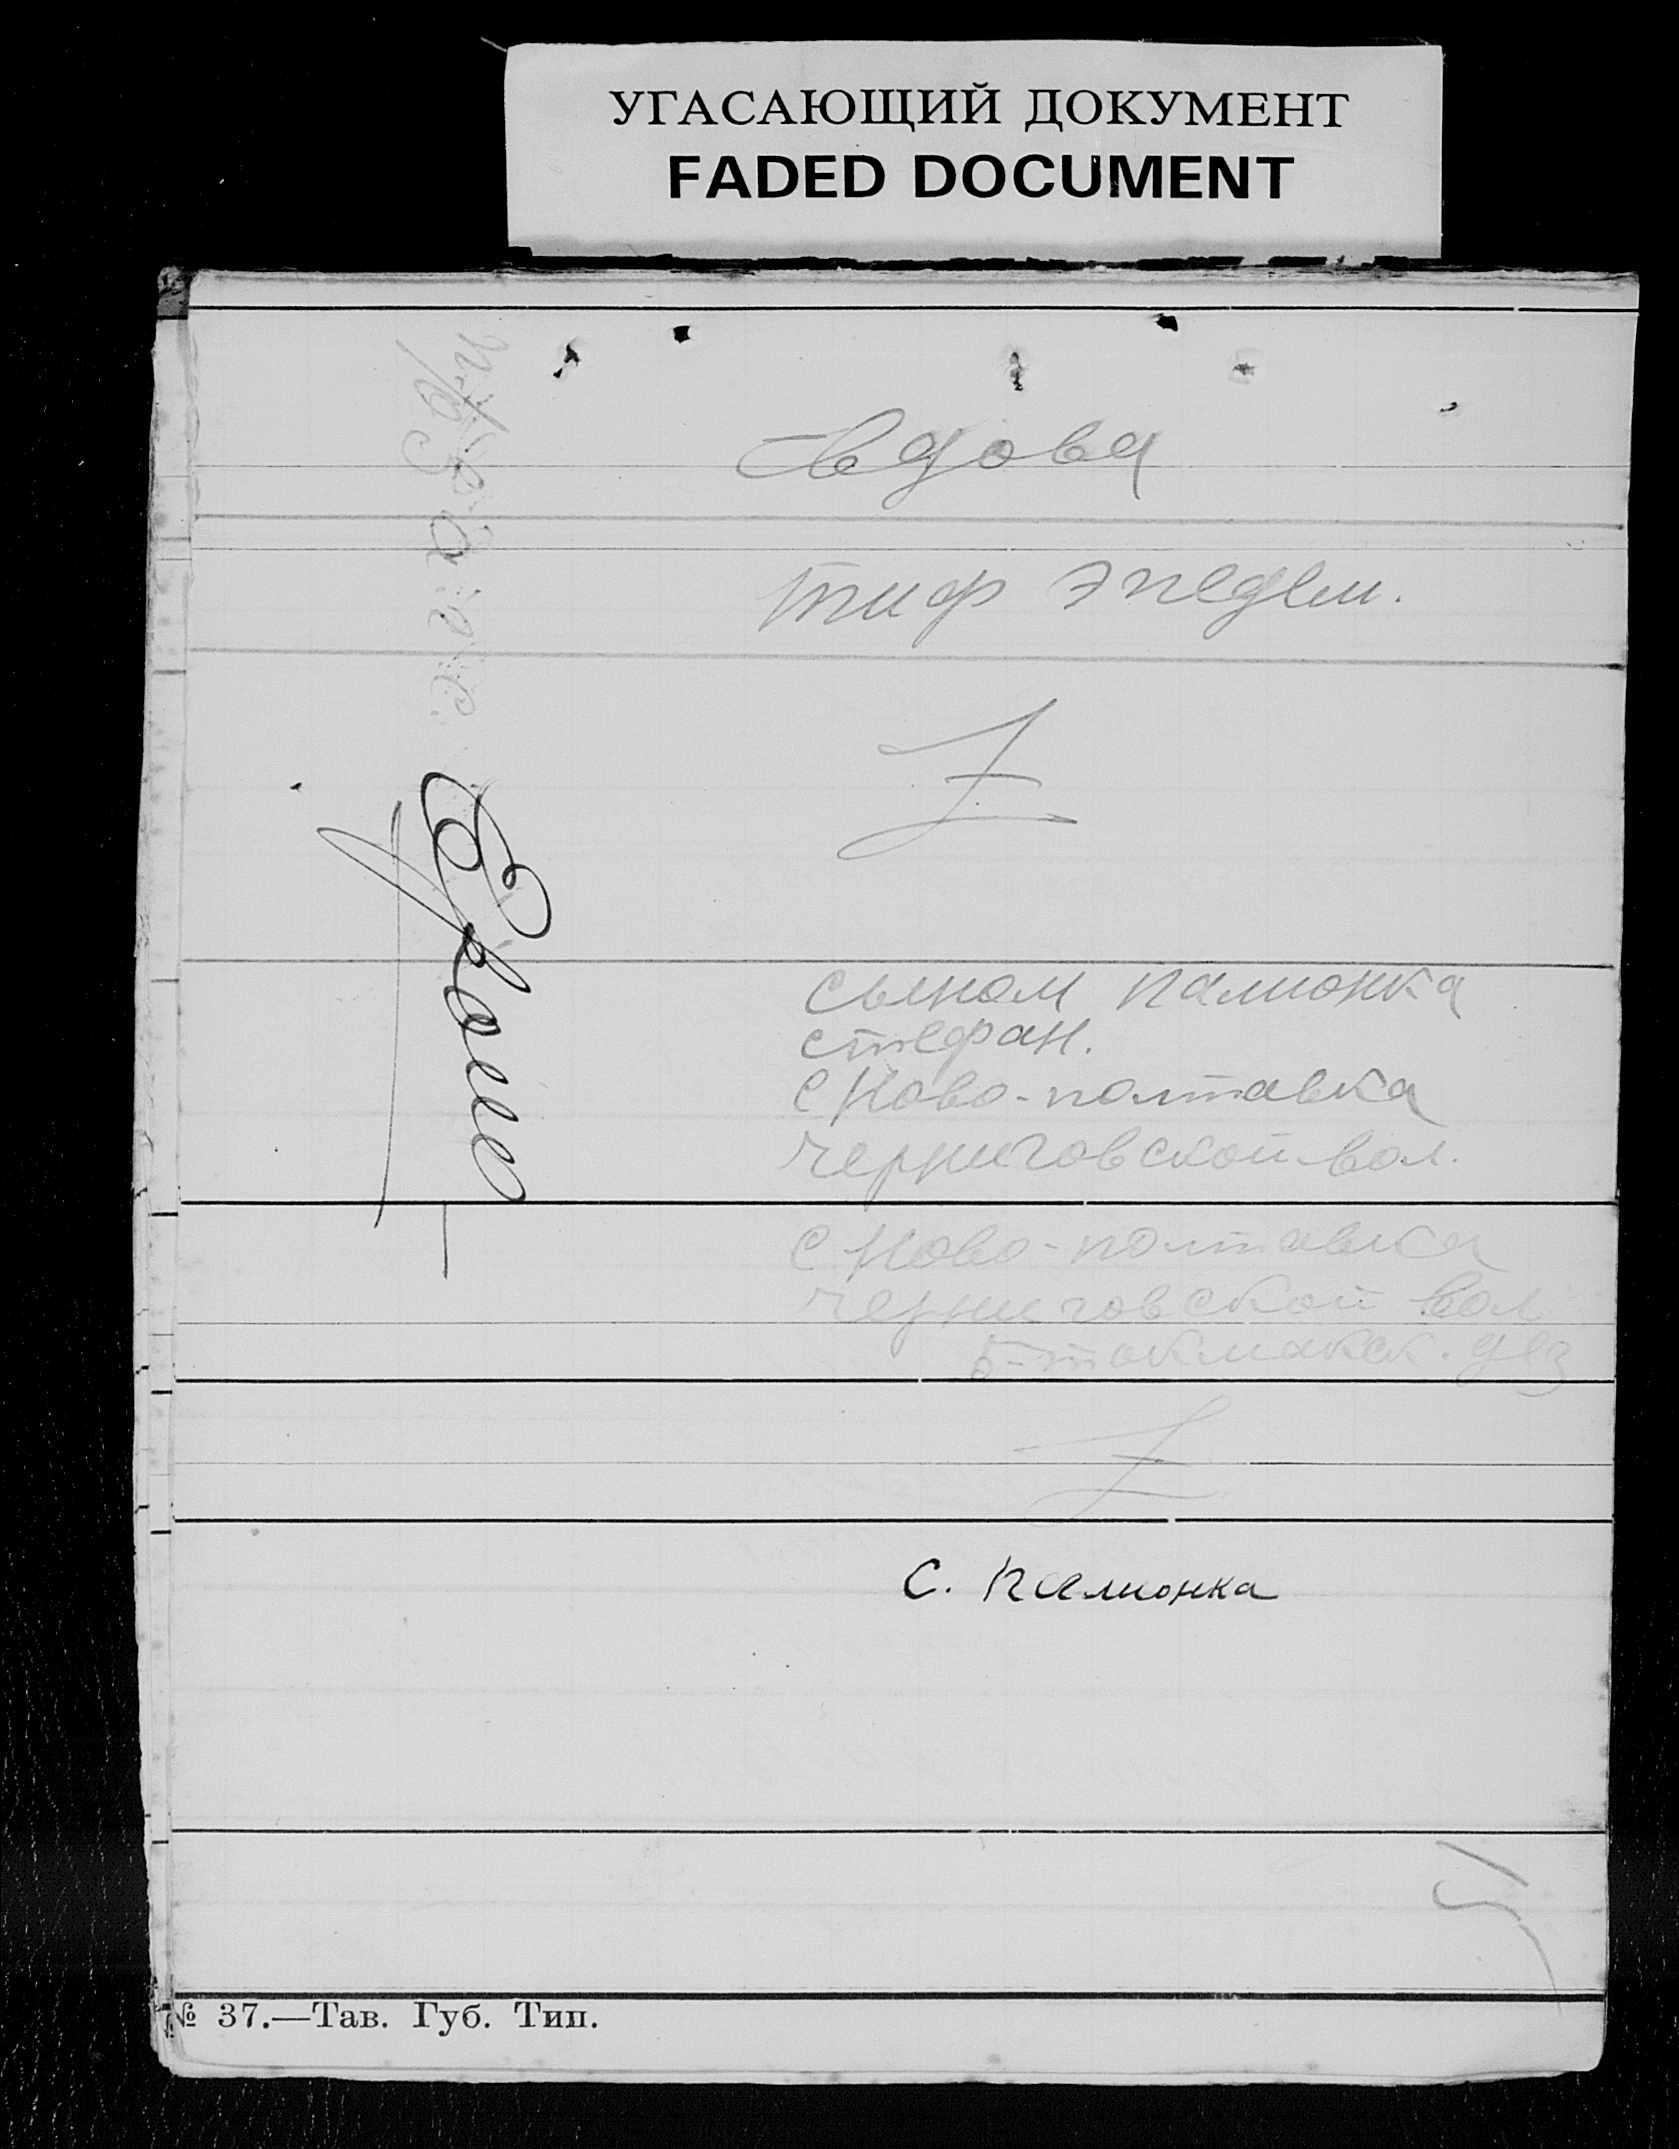 УГАСАЮЩИЙ ДОКУМЕНТ
FADED DOCUMENT
вдова
тиф эпедем.
Z
сыном палионка
стефан.
с Ново-полтавка
черниговской вол.
с Ново-полтавка
черниговской вол
б-токмакск. уез
Z
С. палионка
№ 37.—Тав. Губ. Тип.